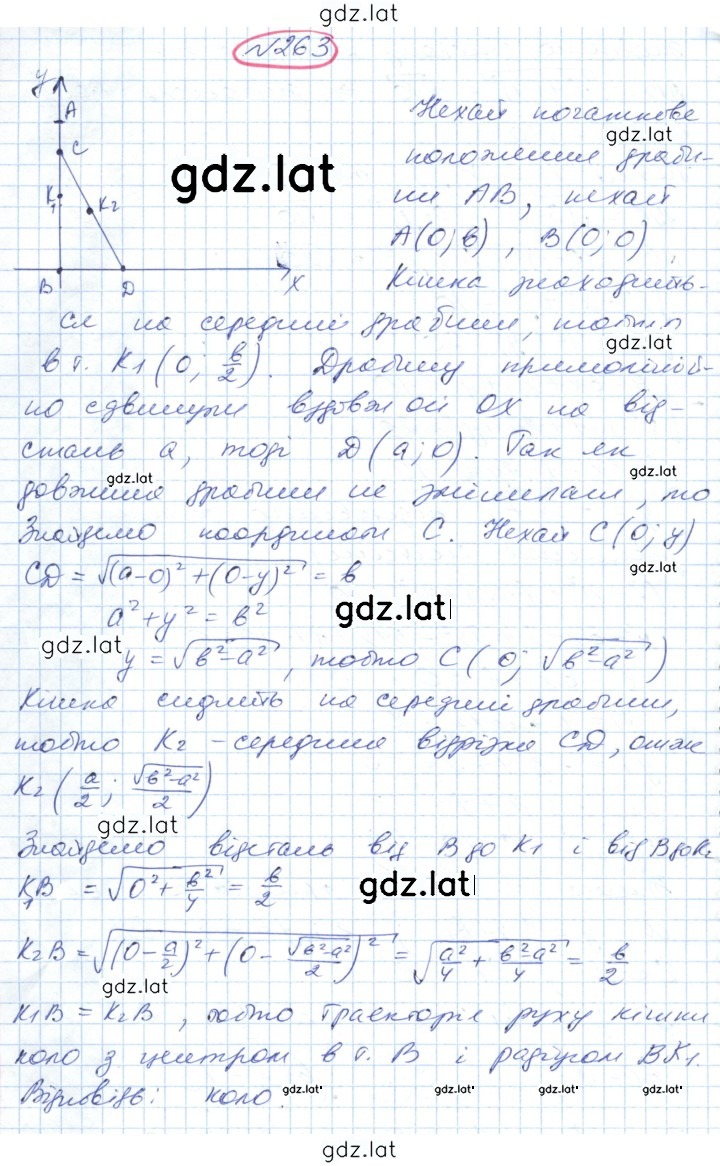 gdz.lat
№263
y
A
C
K1
K2
B
D
x
Нехай початкове
gdz.lat
gdz.lat
положення драби-
ни AB, нехай
A(0; в), B(0; 0)
Кішка знаходить-
ся на середині драбини, тобто
gdz.lat
в т. K1 (0; в/2). Драбину прямоліній-
но сдвинули вздовж осі OX на від-
стань a, тоді D(a; 0). Так як
gdz.lat
gdz.lat
довжина драбини не змінилась, то
Знайдемо координати C. Нехай C(0; y)
CD = √((a-0)² + (0-y)²) = в
gdz.lat
a² + y² = в²
gdz.lat
gdz.lat
y = √(в²-a²), тобто C(0; √(в²-a²))
Кішка сидить на середині драбини,
тобто K2 - середина відрізка CD, отже
K2 (a/2; √(в²-a²)/2)
gdz.lat
Знайдемо відстань від B до K1 і від B до K2
K1B = √(0² + в²/4) = в/2
gdz.lat
K2B = √((0 - a/2)² + (0 - √(в²-a²)/2)²) = √(a²/4 + (в²-a²)/4) = в/2
gdz.lat
K1B = K2B, тобто траєкторія руху кішки
коло з центром в т. B і радіусом BK1.
Відповідь: коло.
gdz.lat
gdz.lat
gdz.lat
gdz.lat
gdz.lat